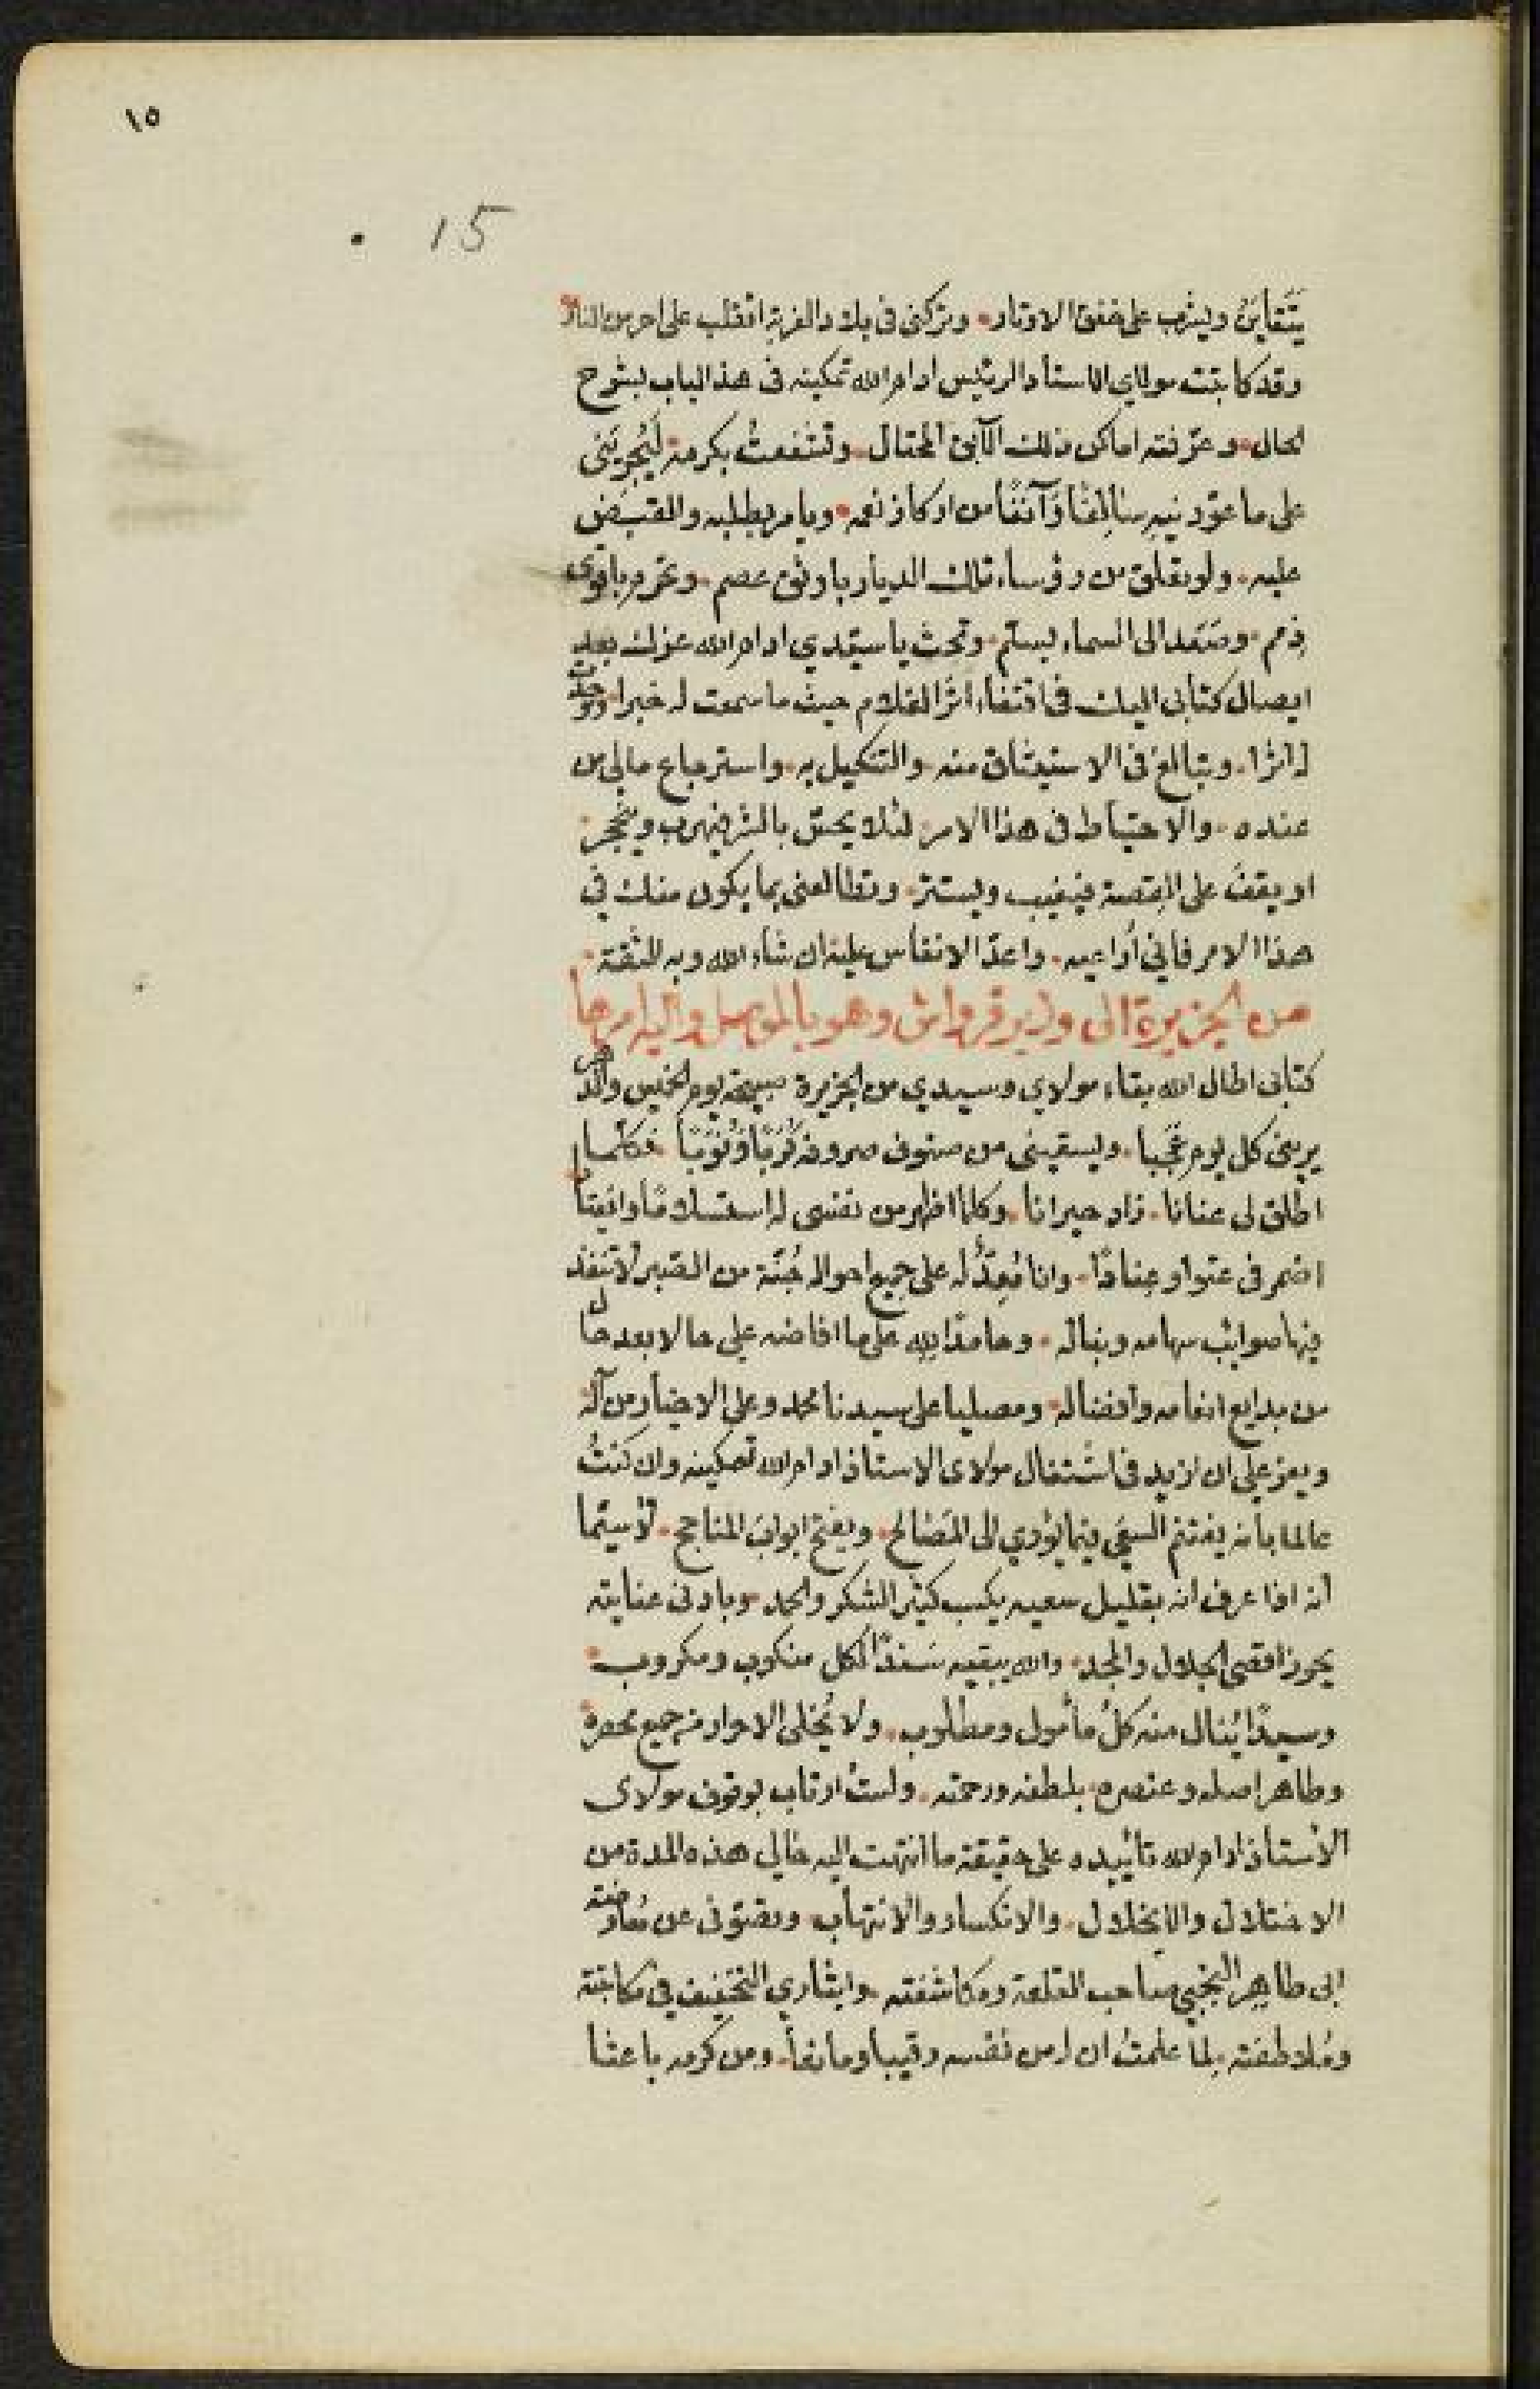 ١٥
15
يتقاين ويشرب على خفق الاوتار وتركنى فى بلاد الغربة اتقلب على احر من النار
وقد كاتبت مولاى الاستاد الرئيس ادام الله تمكينه فى هذا الباب بشرح
الحال وعرّفته اماكن ذلك الآبق المحتال وتشفعتُ بكرمه ليُجرينى
على ما عوّدنيه سالفًا وآنفًا من اركان نعمه ويامر بطلبه والقبض
عليه ولو تعلق من رؤساء تلك الديار باوثق عصم وتحرم باقوى
ذمم وصعد الى السماء بسلم وتحث يا سيدي ادام الله عزك بعد
ايصال كتابى اليك فى اقتفاء اثر الغلام حيث ما سمعت له خبرا ووجدت
له اثرا وتبالغ فى الاستيثاق منه والتنكيل به واسترجاع مالى من
عنده والاحتياط فى هذا الامر لئلا يحسّ بالشر فيهرب وينجحر
او يقف على القصة فيغيب ويستتر وتطالعنى بما يكون منك في
هذا الامر فانى اراعيه واعدّ الانفاس عليه ان شاء الله وبه الثقة
من الجزيرة الى وزير قرواش وهو بالموصل واليه امرها
كتابى اطال الله بقاء مولاي وسيدي من الجزيرة صبيحة يوم الخميس والدهر
يرينى كل يوم عجبا ويسقينى من صنوف صروفه كُرَبًا ونُوَبًا فكلما
اطلق لى عنانا زاد حرانا وكلما اظهر من نفسى له استسلامًا وانقيادا
اضمر فى عتوا وعنادًا وانا مُعِدٌّ له على جميع احواله جُنّة من الصبر لا تنفذ
فيها صوائب سهامه ونباله وحامدًا لله على ما افاضه علي حالا بعد حال
من بدايع انعامه وافضاله ومصليا على سيدنا محمد وعلى الاخيار من آله
ويعز علي ان ازيد فى اشتغال مولاى الاستاذ ادام الله تمكينه وان كنتُ
عالما بانه يغتنم السعى فيما يؤدي الى المصالح ويفتح ابواب المناجح لا سيّما
انه اذا عرف انه بقليل سعيه يكسب كثير الشكر والحمد وبادنى عنايته
يحوز اقصى الجلال والمجد والله يبقيه سندًا لكل منكوب ومكروب
وسيدًا يُنال منه كل مأمول ومطلوب ولا يُخلى الاحرار من جميع محضره
وطاهر اصله وعنصره بلطفه ورحمته ولستُ ارتاب بوقوف مولاى
الاستاذ ادام الله تأييده على حقيقة ما انتهت اليه حالي هذه المدة من
الاختلال والانخلال والانكسار والانتهاب وتصوّنى عن معارضة
ابى طاهر البخبي صاحب القلعة ومكاشفته وايثاري التخفيف في مكاتبته
ومُلاطفته لما علمتُ ان له من نفسه رقيبا ومانعا ومن كرمه باعثا